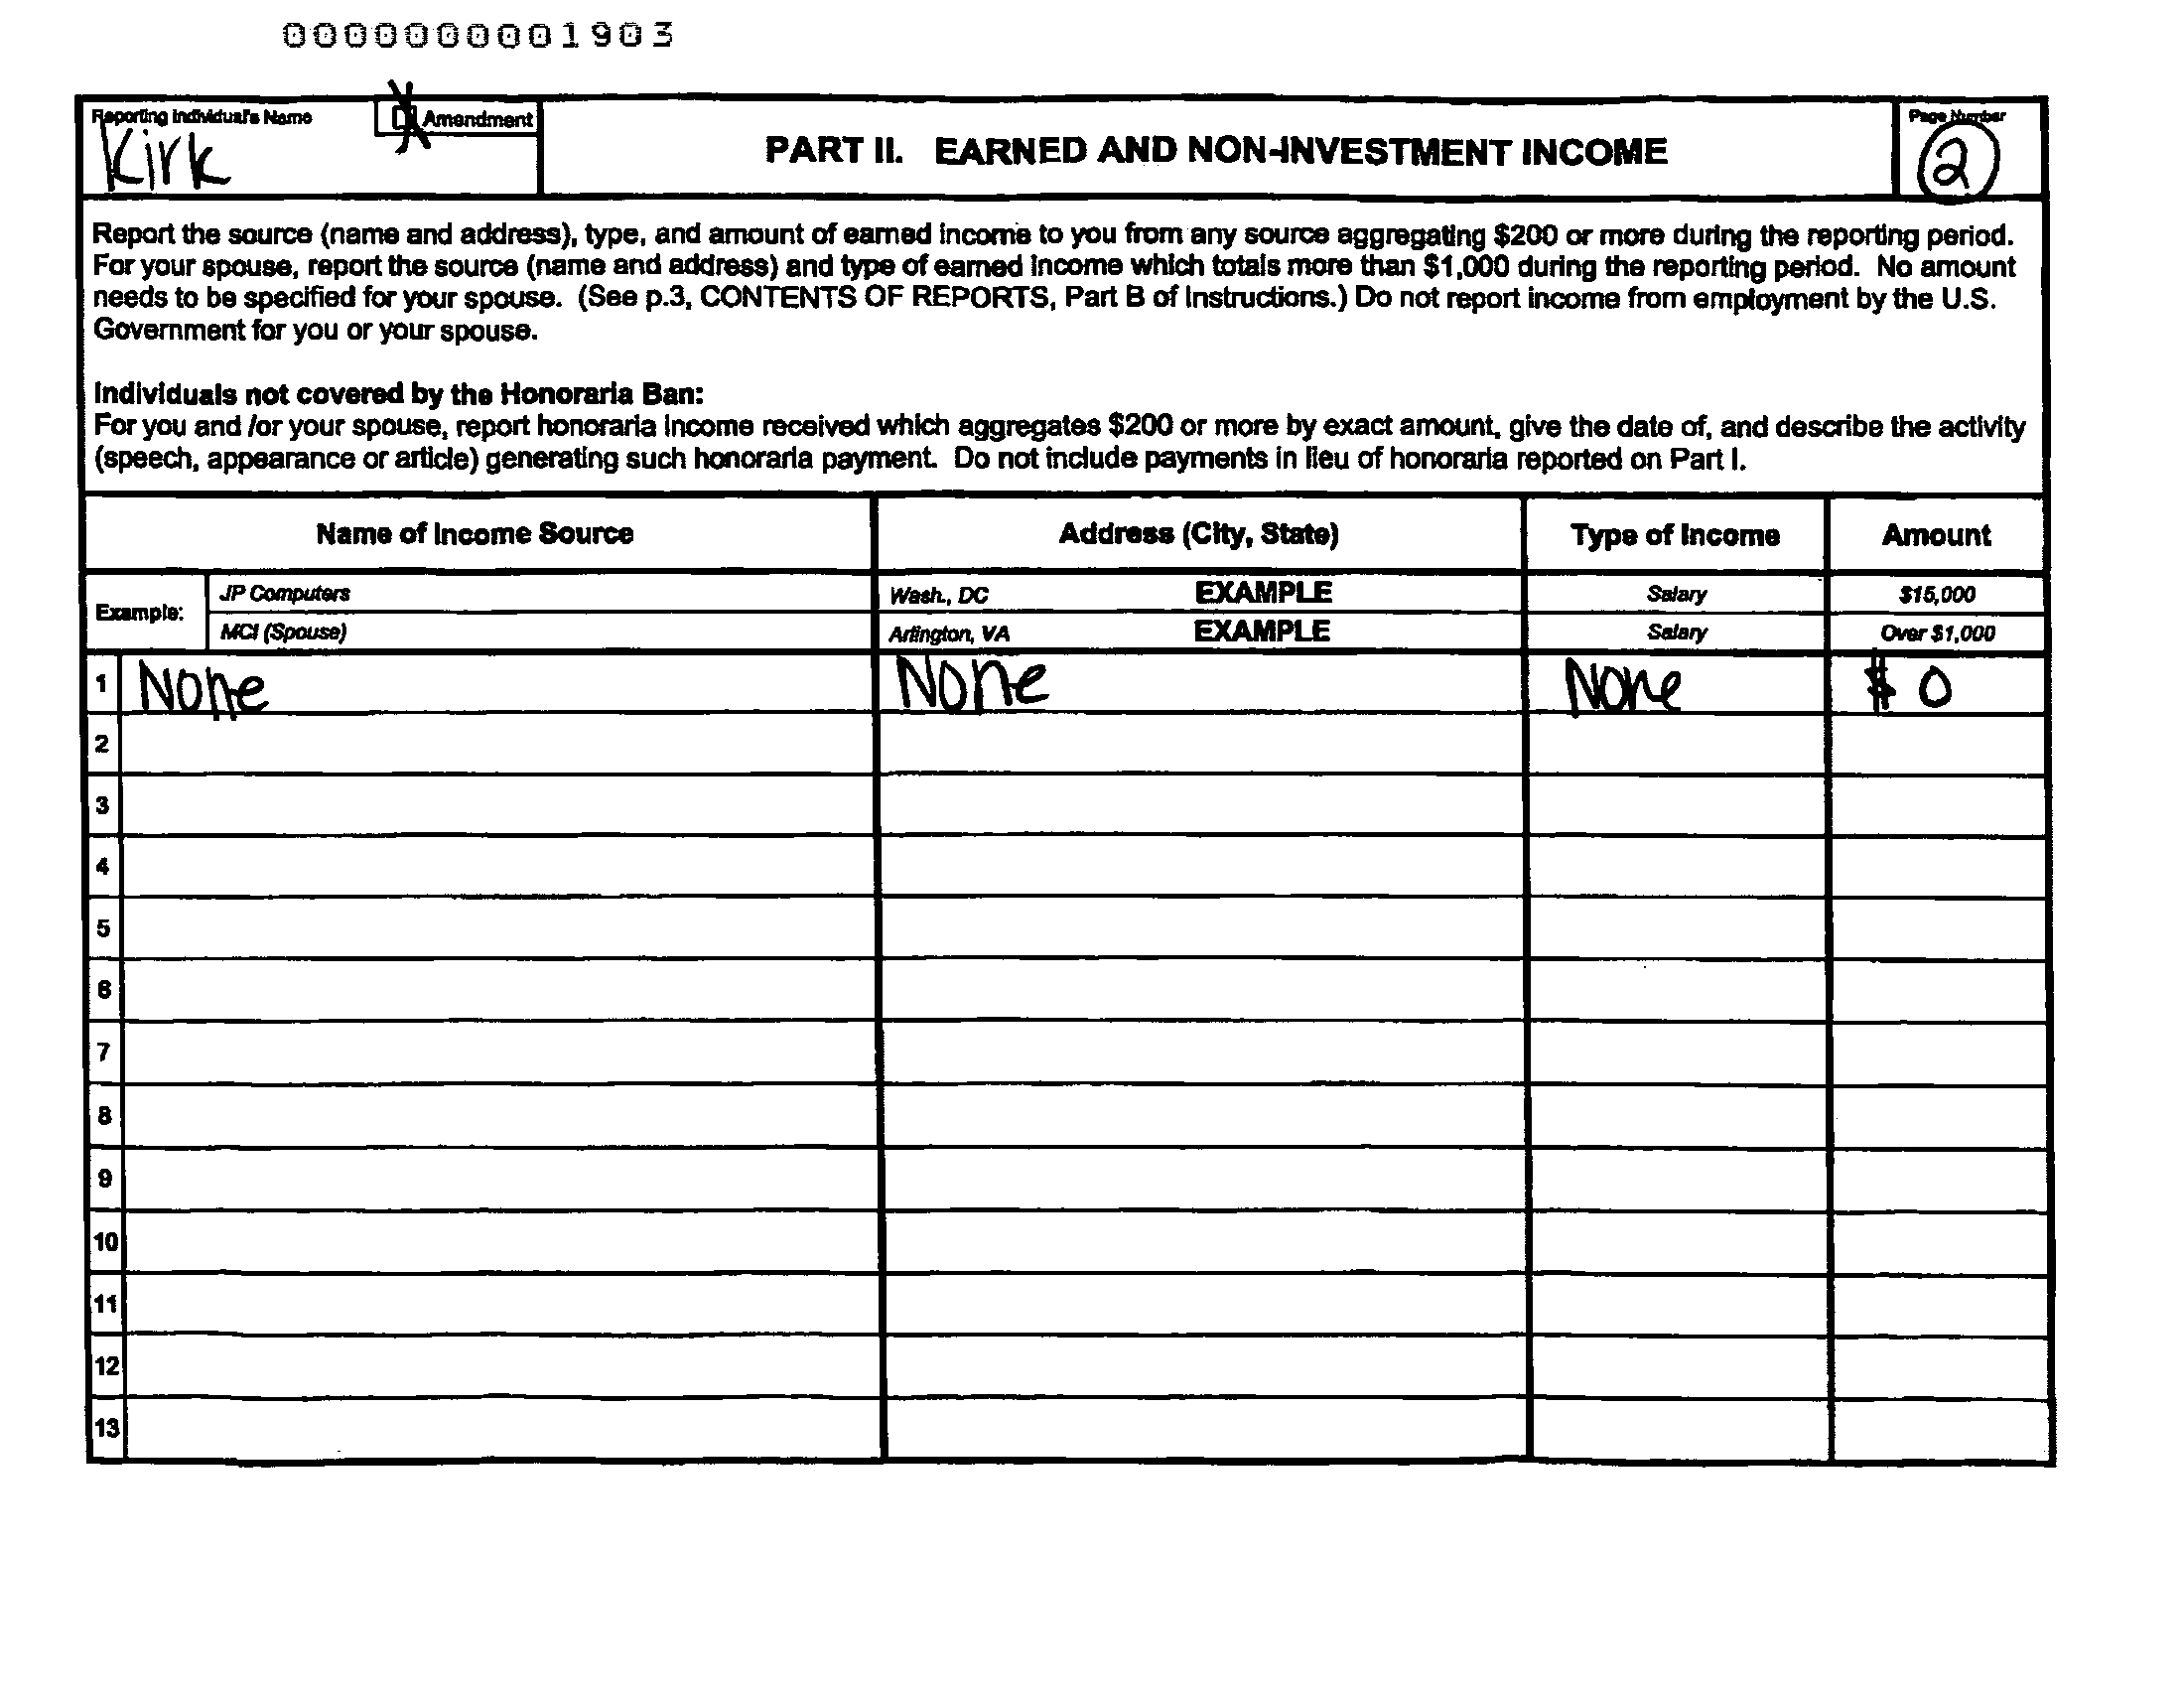 0000000001903
Reporting Individual's Name
Amendment
Kirk
PART II. EARNED AND NON-INVESTMENT INCOME
Page Number
2
Report the source (name and address), type, and amount of earned income to you from any source aggregating $200 or more during the reporting period.
For your spouse, report the source (name and address) and type of earned income which totals more than $1,000 during the reporting period. No amount
needs to be specified for your spouse. (See p.3, CONTENTS OF REPORTS, Part B of Instructions.) Do not report income from employment by the U.S.
Government for you or your spouse.
Individuals not covered by the Honoraria Ban:
For you and /or your spouse, report honoraria income received which aggregates $200 or more by exact amount, give the date of, and describe the activity
(speech, appearance or article) generating such honoraria payment. Do not include payments in lieu of honoraria reported on Part I.
Name of Income Source Address (City, State) Type of Income Amount
Example: JP Computers Wash., DC EXAMPLE Salary $15,000
MCI (Spouse) Arlington, VA EXAMPLE Salary Over $1,000
1 None None None $ 0
2
3
4
5
6
7
8
9
10
11
12
13